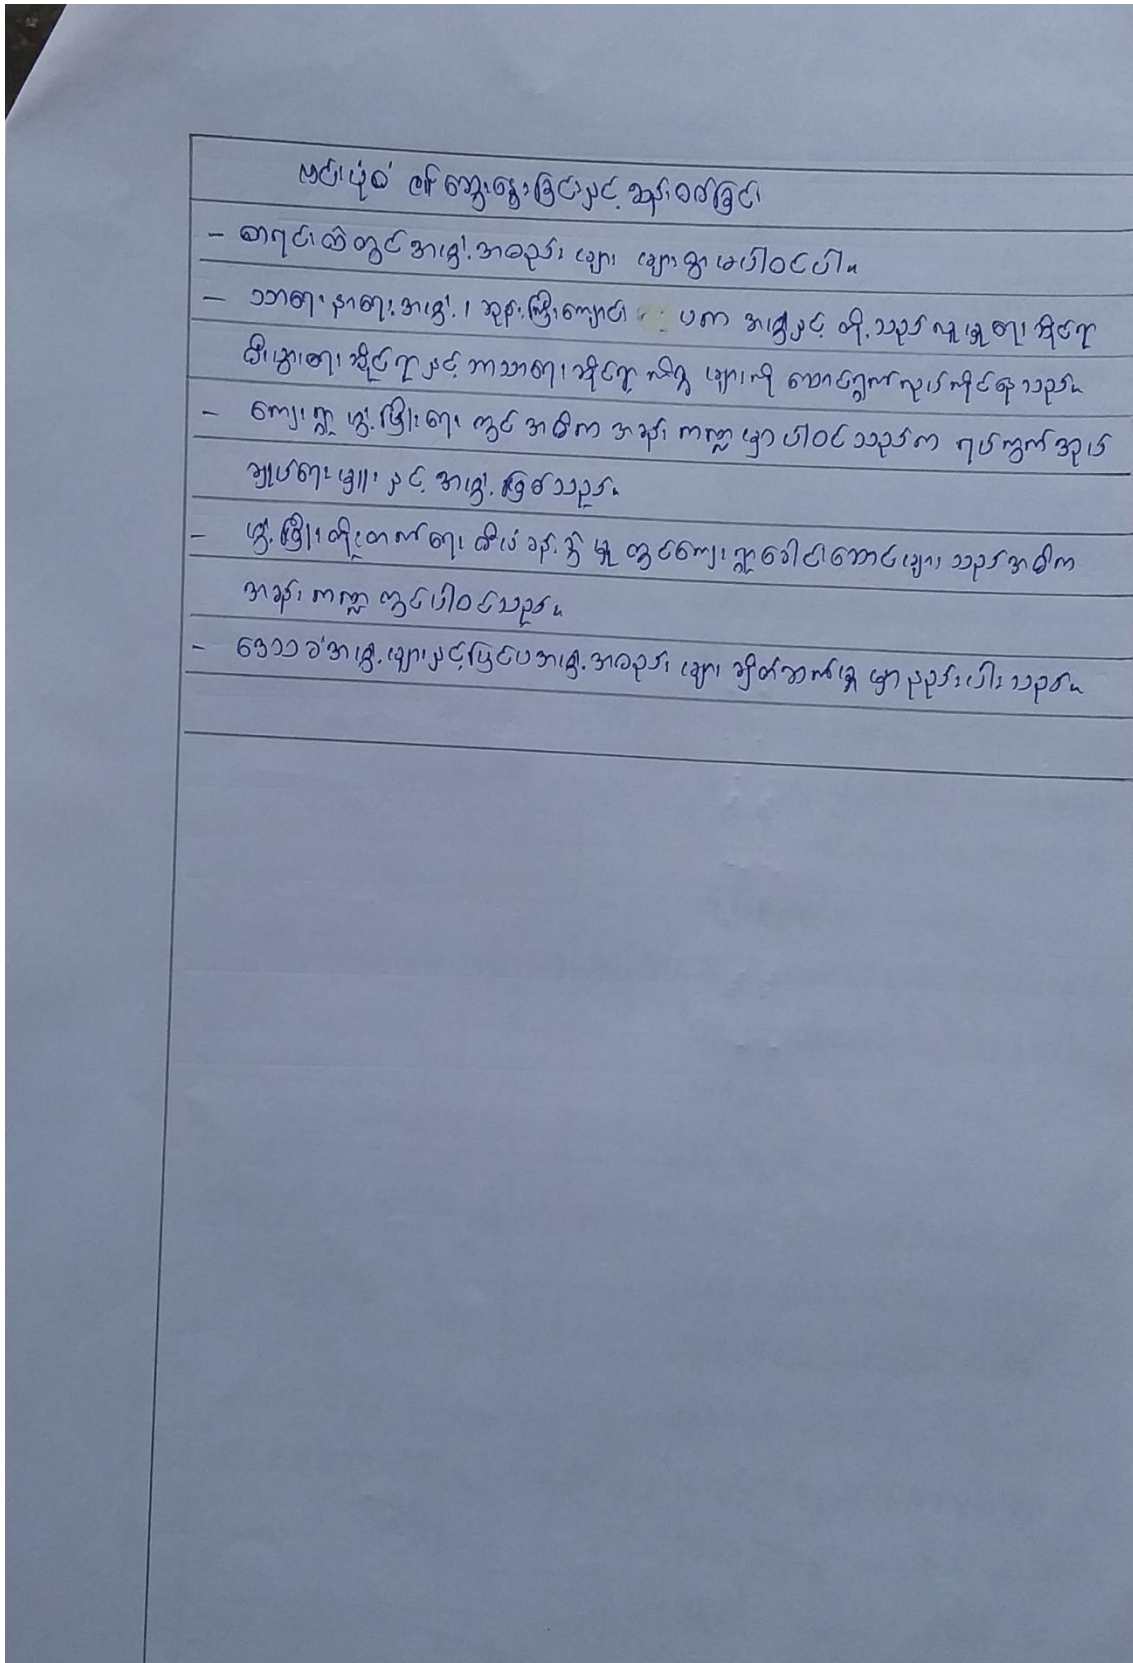 ဗင်းပုံစံ ဇစ် ဆွေးနွေးခြင်းနှင့် ဆန်းစစ်ခြင်း
- စာရင်းထဲတွင် အဖွဲ့ အစည်း များ များစွာ မပါဝင်ပါ။
- သာရေး နာရေး အဖွဲ့ ၊ ဘုန်းကြီးကျောင်း ပကာ အဖွဲ့နှင့် တို့သည် လူမှုရေး ဆိုင်ရာ
စီးပွားရေး ဆိုင်ရာ နှင့် ဘာသာရေး ဆိုင်ရာ ကိစ္စ များကို ဆောင်ရွက်လုပ်ကိုင်နေသည်။
- ကျေးရွာ ဖွံ့ဖြိုးရေး တွင် အဓိက အခန်း ကဏ္ဍ မှာ ပါဝင် သည်က ရပ်ကွက် အုပ်
ချုပ်ရေးမှူး နှင့် အဖွဲ့ ဖြစ်သည်။
- ဖွံ့ဖြိုး တိုးတက်ရေး စီမံ ခန့်ခွဲ မှု တွင် ကျေးရွာ ခေါင်းဆောင်များ သည် အဓိက
အခန်း ကဏ္ဍ တွင် ပါဝင်သည်။
- ဒေသခံ အဖွဲ့ များနှင့် ပြင်ပ အဖွဲ့ အစည်း များ ချိတ်ဆက်မှု မှာ နည်းပါး သည်။